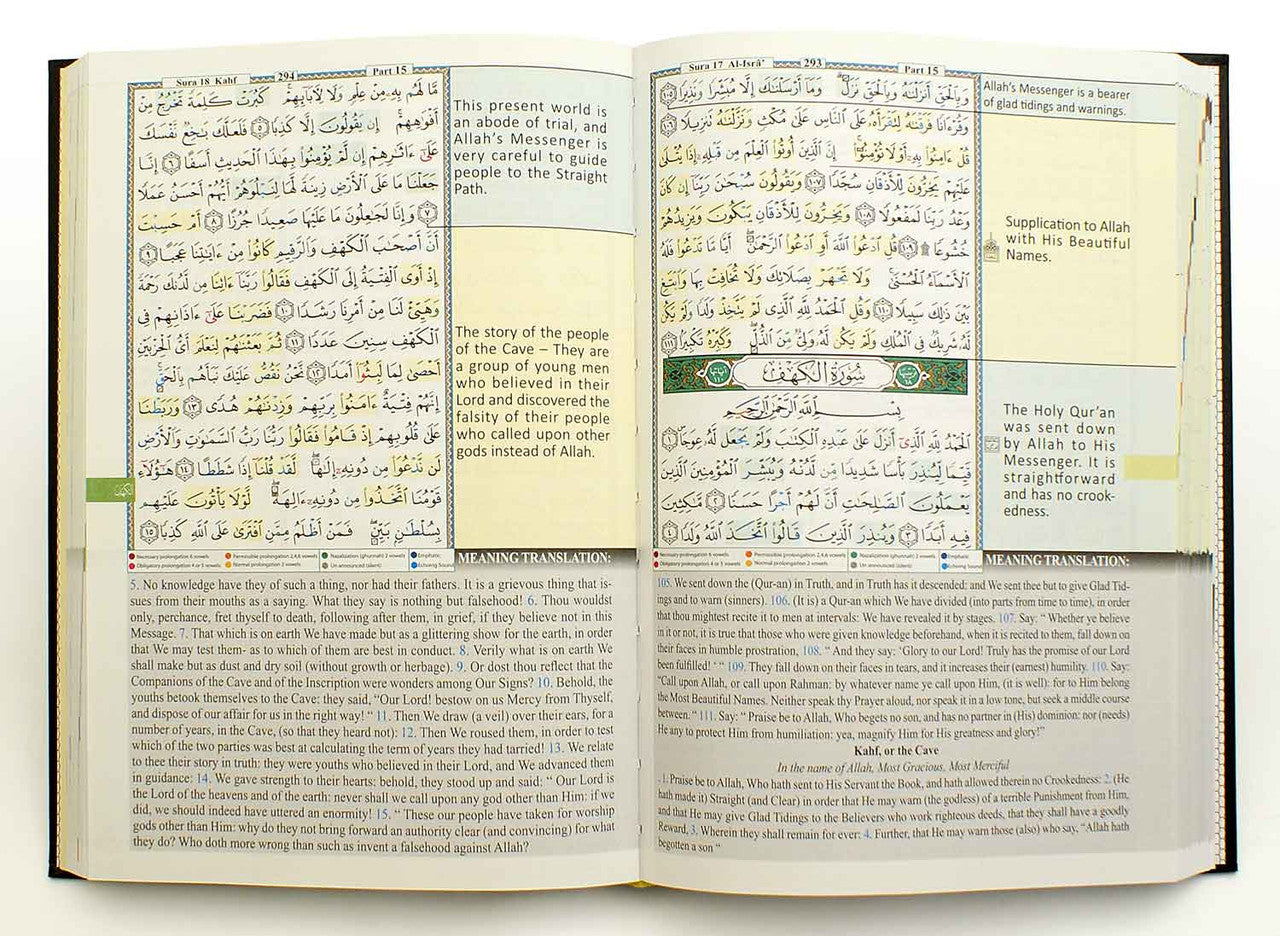 Sura 17 Al-Isrâ’ 293 Part 15
وَبِالْحَقِّ أَنزَلْنَاهُ وَبِالْحَقِّ نَزَلَ ۗ وَمَا أَرْسَلْنَاكَ إِلَّا مُبَشِّرًا وَنَذِيرًا ١٠٥
وَقُرْءَانًا فَرَقْنَاهُ لِتَقْرَأَهُ عَلَى النَّاسِ عَلَىٰ مُكْثٍ وَنَزَّلْنَاهُ تَنزِيلًا ١٠٦
قُلْ ءَامِنُوا بِهِ أَوْ لَا تُؤْمِنُوا ۚ إِنَّ الَّذِينَ أُوتُوا الْعِلْمَ مِن قَبْلِهِ إِذَا يُتْلَىٰ
عَلَيْهِمْ يَخِرُّونَ لِلْأَذْقَانِ سُجَّدًا ١٠٧ وَيَقُولُونَ سُبْحَانَ رَبِّنَا إِن كَانَ
وَعْدُ رَبِّنَا لَمَفْعُولًا ١٠٨ وَيَخِرُّونَ لِلْأَذْقَانِ يَبْكُونَ وَيَزِيدُهُمْ
خُشُوعًا ۩ ١٠٩ قُلِ ادْعُوا اللَّهَ أَوِ ادْعُوا الرَّحْمَٰنَ ۖ أَيًّا مَّا تَدْعُوا فَلَهُ
الْأَسْمَاءُ الْحُسْنَىٰ ۚ وَلَا تَجْهَرْ بِصَلَاتِكَ وَلَا تُخَافِتْ بِهَا وَابْتَغِ
بَيْنَ ذَٰلِكَ سَبِيلًا ١١٠ وَقُلِ الْحَمْدُ لِلَّهِ الَّذِي لَمْ يَتَّخِذْ وَلَدًا وَلَمْ يَكُن
لَّهُ شَرِيكٌ فِي الْمُلْكِ وَلَمْ يَكُن لَّهُ وَلِيٌّ مِّنَ الذُّلِّ ۖ وَكَبِّرْهُ تَكْبِيرًا ١١١
سُورَةُ الْكَهْفِ
بِسْمِ اللَّهِ الرَّحْمَٰنِ الرَّحِيمِ
الْحَمْدُ لِلَّهِ الَّذِي أَنزَلَ عَلَىٰ عَبْدِهِ الْكِتَابَ وَلَمْ يَجْعَل لَّهُ عِوَجًا ١
قَيِّمًا لِّيُنذِرَ بَأْسًا شَدِيدًا مِّن لَّدُنْهُ وَيُبَشِّرَ الْمُؤْمِنِينَ الَّذِينَ
يَعْمَلُونَ الصَّالِحَاتِ أَنَّ لَهُمْ أَجْرًا حَسَنًا ٢ مَّاكِثِينَ
فِيهِ أَبَدًا ٣ وَيُنذِرَ الَّذِينَ قَالُوا اتَّخَذَ اللَّهُ وَلَدًا ٤
Allah's Messenger is a bearer
of glad tidings and warnings.
Supplication to Allah
with His Beautiful
Names.
The Holy Qur'an
was sent down
by Allah to His
Messenger. It is
straightforward
and has no crook-
edness.
Necessary prolongation 6 vowels Permissible prolongation 2,4,6 vowels Nazalization (ghunnah) 2 vowels Emphatic
Obligatory prolongation 4 or 5 vowels Normal prolongation 2 vowels Un announced (silent) Echoing Sound
MEANING TRANSLATION:
105. We sent down the (Qur-an) in Truth, and in Truth has it descended: and We sent thee but to give Glad Tid-
ings and to warn (sinners). 106. (It is) a Qur-an which We have divided (into parts from time to time), in order
that thou mightest recite it to men at intervals: We have revealed it by stages. 107. Say: “ Whether ye believe
in it or not, it is true that those who were given knowledge beforehand, when it is recited to them, fall down on
their faces in humble prostration, 108. “ And they say: ‘Glory to our Lord! Truly has the promise of our Lord
been fulfilled! ‘ “ 109. They fall down on their faces in tears, and it increases their (earnest) humility. 110. Say:
“Call upon Allah, or call upon Rahman: by whatever name ye call upon Him, (it is well): for to Him belong
the Most Beautiful Names. Neither speak thy Prayer aloud, nor speak it in a low tone, but seek a middle course
between. “ 111. Say: “ Praise be to Allah, Who begets no son, and has no partner in (His) dominion: nor (needs)
He any to protect Him from humiliation: yea, magnify Him for His greatness and glory!”
Kahf, or the Cave
In the name of Allah, Most Gracious, Most Merciful
1. Praise be to Allah, Who hath sent to His Servant the Book, and hath allowed therein no Crookedness: 2. (He
hath made it) Straight (and Clear) in order that He may warn (the godless) of a terrible Punishment from Him,
and that He may give Glad Tidings to the Believers who work righteous deeds, that they shall have a goodly
Reward, 3. Wherein they shall remain for ever: 4. Further, that He may warn those (also) who say, “Allah hath
begotten a son “
Sura 18 Kahf 294 Part 15
مَّا لَهُم بِهِ مِنْ عِلْمٍ وَلَا لِآبَائِهِمْ ۚ كَبُرَتْ كَلِمَةً تَخْرُجُ مِنْ
أَفْوَاهِهِمْ ۚ إِن يَقُولُونَ إِلَّا كَذِبًا ٥ فَلَعَلَّكَ بَاخِعٌ نَّفْسَكَ
عَلَىٰ ءَاثَارِهِمْ إِن لَّمْ يُؤْمِنُوا بِهَٰذَا الْحَدِيثِ أَسَفًا ٦ إِنَّا
جَعَلْنَا مَا عَلَى الْأَرْضِ زِينَةً لَّهَا لِنَبْلُوَهُمْ أَيُّهُمْ أَحْسَنُ عَمَلًا
٧ وَإِنَّا لَجَاعِلُونَ مَا عَلَيْهَا صَعِيدًا جُرُزًا ٨ أَمْ حَسِبْتَ
أَنَّ أَصْحَابَ الْكَهْفِ وَالرَّقِيمِ كَانُوا مِنْ ءَايَاتِنَا عَجَبًا ٩
إِذْ أَوَى الْفِتْيَةُ إِلَى الْكَهْفِ فَقَالُوا رَبَّنَا ءَاتِنَا مِن لَّدُنكَ رَحْمَةً
وَهَيِّئْ لَنَا مِنْ أَمْرِنَا رَشَدًا ١٠ فَضَرَبْنَا عَلَىٰ ءَاذَانِهِمْ فِي
الْكَهْفِ سِنِينَ عَدَدًا ١١ ثُمَّ بَعَثْنَاهُمْ لِنَعْلَمَ أَيُّ الْحِزْبَيْنِ
أَحْصَىٰ لِمَا لَبِثُوا أَمَدًا ١٢ نَّحْنُ نَقُصُّ عَلَيْكَ نَبَأَهُم بِالْحَقِّ ۚ
إِنَّهُمْ فِتْيَةٌ ءَامَنُوا بِرَبِّهِمْ وَزِدْنَاهُمْ هُدًى ١٣ وَرَبَطْنَا
عَلَىٰ قُلُوبِهِمْ إِذْ قَامُوا فَقَالُوا رَبُّنَا رَبُّ السَّمَاوَاتِ وَالْأَرْضِ
لَن نَّدْعُوَا مِن دُونِهِ إِلَٰهًا ۖ لَّقَدْ قُلْنَا إِذًا شَطَطًا ١٤ هَٰؤُلَاءِ
قَوْمُنَا اتَّخَذُوا مِن دُونِهِ ءَالِهَةً ۖ لَّوْلَا يَأْتُونَ عَلَيْهِم
بِسُلْطَانٍ بَيِّنٍ ۖ فَمَنْ أَظْلَمُ مِمَّنِ افْتَرَىٰ عَلَى اللَّهِ كَذِبًا ١٥
الكهف
This present world is
an abode of trial, and
Allah's Messenger is
very careful to guide
people to the Straight
Path.
The story of the people
of the Cave – They are
a group of young men
who believed in their
Lord and discovered the
falsity of their people
who called upon other
gods instead of Allah.
Necessary prolongation 6 vowels Permissible prolongation 2,4,6 vowels Nazalization (ghunnah) 2 vowels Emphatic
Obligatory prolongation 4 or 5 vowels Normal prolongation 2 vowels Un announced (silent) Echoing Sound
MEANING TRANSLATION:
5. No knowledge have they of such a thing, nor had their fathers. It is a grievous thing that is-
sues from their mouths as a saying. What they say is nothing but falsehood! 6. Thou wouldst
only, perchance, fret thyself to death, following after them, in grief, if they believe not in this
Message. 7. That which is on earth We have made but as a glittering show for the earth, in order
that We may test them- as to which of them are best in conduct. 8. Verily what is on earth We
shall make but as dust and dry soil (without growth or herbage). 9. Or dost thou reflect that the
Companions of the Cave and of the Inscription were wonders among Our Signs? 10. Behold, the
youths betook themselves to the Cave: they said, “Our Lord! bestow on us Mercy from Thyself,
and dispose of our affair for us in the right way! “ 11. Then We draw (a veil) over their ears, for a
number of years, in the Cave, (so that they heard not): 12. Then We roused them, in order to test
which of the two parties was best at calculating the term of years they had tarried! 13. We relate
to thee their story in truth: they were youths who believed in their Lord, and We advanced them
in guidance: 14. We gave strength to their hearts: behold, they stood up and said: “ Our Lord is
the Lord of the heavens and of the earth: never shall we call upon any god other than Him: if we
did, we should indeed have uttered an enormity! 15. “ These our people have taken for worship
gods other than Him: why do they not bring forward an authority clear (and convincing) for what
they do? Who doth more wrong than such as invent a falsehood against Allah?